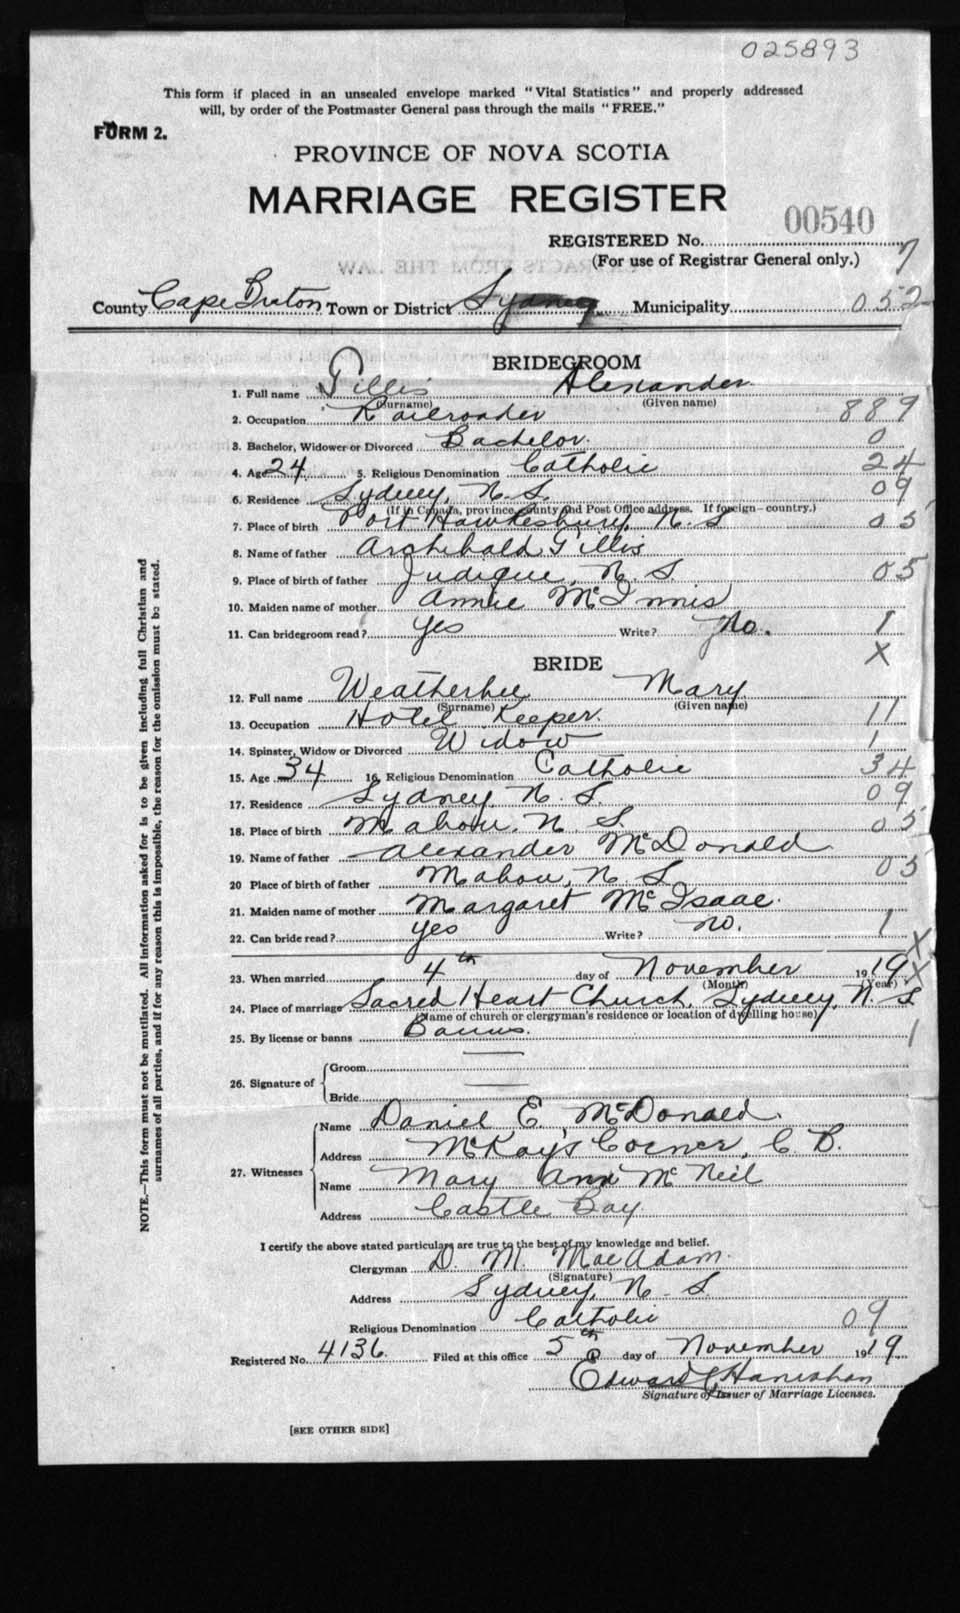 025893
This form if placed in an unsealed envelope marked "Vital Statistics" and properly addressed
will, by order of the Postmaster General pass through the mails "FREE."
FORM 2.
PROVINCE OF NOVA SCOTIA
MARRIAGE REGISTER
00540
REGISTERED No.
(For use of Registrar General only.) 7
County Cape Breton Town or District Sydney Municipality 052
BRIDEGROOM
1. Full name Gillis Alexander
(Surname) (Given name)
2. Occupation Railroader 889
3. Bachelor, Widower or Divorced Bachelor. 0
4. Age 24 5. Religious Denomination Catholic 24
6. Residence Sydney, N. S. 09
(If in Canada, province, county and Post Office address. If foreign—country.)
7. Place of birth Port Hawkesbury, N. S 05
8. Name of father Archibald Gillis
9. Place of birth of father Judique, N. S. 05
10. Maiden name of mother Annie McInnis
11. Can bridegroom read? yes Write? No. 1
X
BRIDE
12. Full name Weatherbee Mary
(Surname) (Given name)
13. Occupation Hotel Keeper. 11
14. Spinster, Widow or Divorced Widow 1
15. Age 34 16. Religious Denomination Catholic 34
17. Residence Sydney, N. S. 09
18. Place of birth Mabou, N. S. 05
19. Name of father Alexander McDonald
20 Place of birth of father Mabou, N. S. 05
21. Maiden name of mother Margaret McIsaac.
22. Can bride read? yes Write? no. 1 X
23. When married 4th day of November 1919 X
(Month) (Year)
24. Place of marriage Sacred Heart Church, Sydney, N. S
(Name of church or clergyman's residence or location of dwelling house)
25. By license or banns Banns. 1
26. Signature of Groom
Bride
27. Witnesses
Name Daniel E. McDonald.
Address McKay's Corner, C. B.
Name Mary Ann McNeil
Address Castle Bay.
I certify the above stated particulars are true to the best of my knowledge and belief.
Clergyman D. M. MacAdam.
(Signature)
Address Sydney, N. S
Religious Denomination Catholic 09
Registered No. 4136. Filed at this office 5th day of November 1919
Edward C. Hanrahan
Signature of Issuer of Marriage Licenses.
[SEE OTHER SIDE]
NOTE.—This form must not be mutilated. All information asked for is to be given including full Christian and
surnames of all parties, and if for any reason this is impossible, the reason for the omission must be stated.